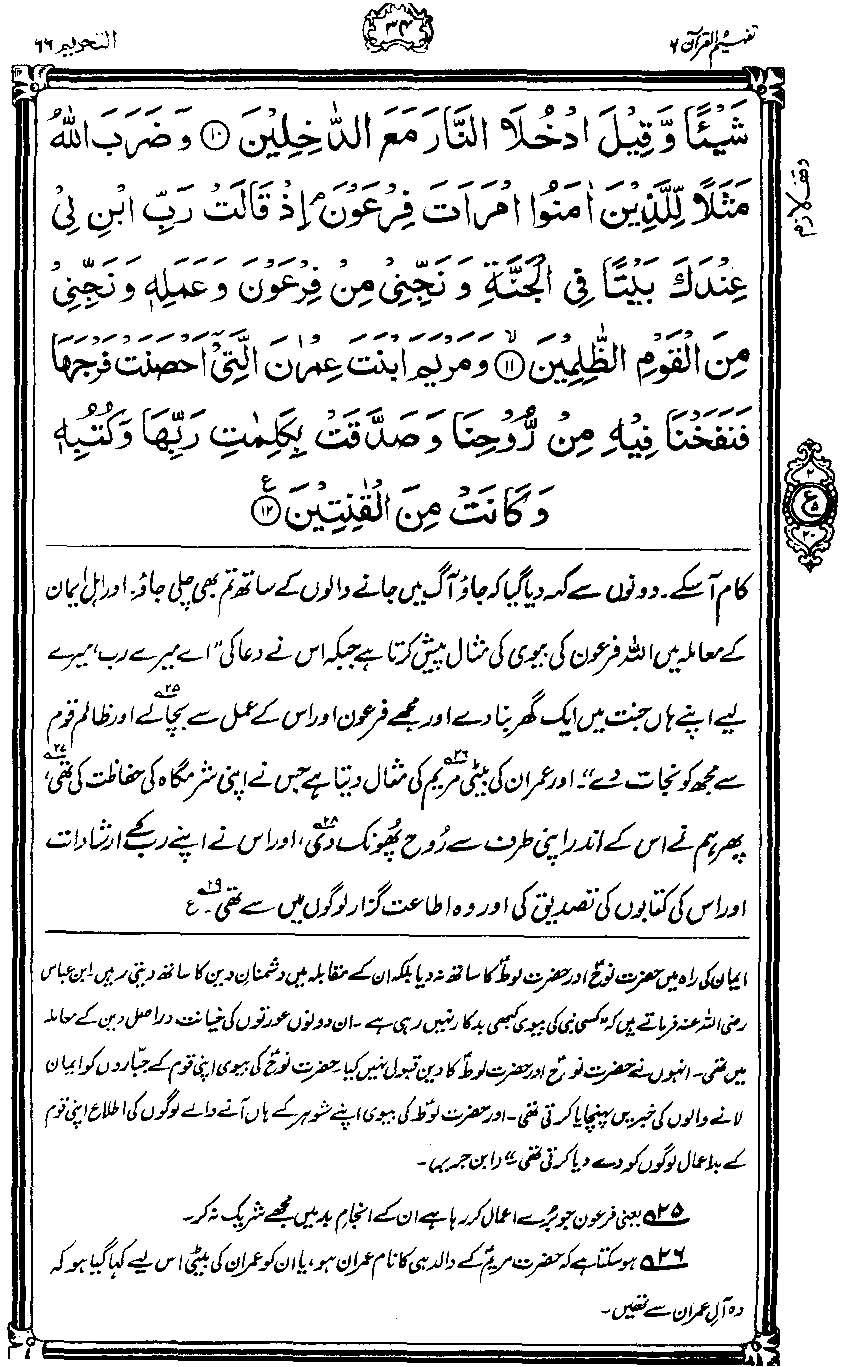 تفہیم القرآن ۶
۳۴
التحریم ۶۶
شَیْـًٔا وَّ قِیْلَ ادْخُلَا النَّارَ مَعَ الدّٰخِلِیْنَ ﴿۱۰﴾ وَ ضَرَبَ اللّٰهُ
مَثَلًا لِّلَّذِیْنَ اٰمَنُوا امْرَاَتَ فِرْعَوْنَ ۘ اِذْ قَالَتْ رَبِّ ابْنِ لِیْ
عِنْدَكَ بَیْتًا فِی الْجَنَّةِ وَ نَجِّنِیْ مِنْ فِرْعَوْنَ وَ عَمَلِهٖ وَ نَجِّنِیْ
مِنَ الْقَوْمِ الظّٰلِمِیْنَ ﴿۱۱﴾ۙ وَ مَرْیَمَ ابْنَتَ عِمْرٰنَ الَّتِیْۤ اَحْصَنَتْ فَرْجَهَا
فَنَفَخْنَا فِیْهِ مِنْ رُّوْحِنَا وَ صَدَّقَتْ بِكَلِمٰتِ رَبِّهَا وَ كُتُبِهٖ
وَ كَانَتْ مِنَ الْقٰنِتِیْنَ ﴿۱۲﴾ ع
وقف لازم
۲
ع
۵
۲۰
کام آ سکے۔ دونوں سے کہہ دیا گیا کہ جاؤ آگ میں جانے والوں کے ساتھ تم بھی چلی جاؤ۔ اور اہل ایمان
کے معاملہ میں اللہ فرعون کی بیوی کی مثال پیش کرتا ہے جبکہ اس نے دعا کی "اے میرے رب، میرے
لیے اپنے ہاں جنت میں ایک گھر بنا دے اور مجھے فرعون اور اس کے عمل سے بچالے ۲۵ اور ظالم قوم
سے مجھ کو نجات دے"۔ اور عمران کی بیٹی ۲۶ مریم کی مثال دیتا ہے جس نے اپنی شرمگاہ کی حفاظت کی تھی، ۲۷
پھر ہم نے اس کے اندر اپنی طرف سے رُوح پھُونک دی ۲۸، اور اس نے اپنے رب کے ارشادات
اور اس کی کتابوں کی تصدیق کی اور وہ اطاعت گزار لوگوں میں سے تھی ۲۹۔ ع
ایمان کی راہ میں حضرت نوحؑ اور حضرت لوطؑ کا ساتھ نہ دیا بلکہ ان کے مقابلہ میں دشمنانِ دین کا ساتھ دیتی رہیں ابن عباس
رضی اللہ عنہ فرماتے ہیں کہ "کسی نبی کی بیوی کبھی بدکار نہیں رہی ہے۔ ان دونوں عورتوں کی خیانت دراصل دین کے معاملہ
میں تھی۔ انہوں نے حضرت نوحؑ اور حضرت لوطؑ کا دین قبول نہیں کیا۔ حضرت نوحؑ کی بیوی اپنی قوم کے جبّاروں کو ایمان
لانے والوں کی خبریں پہنچایا کرتی تھی۔ اور حضرت لوطؑ کی بیوی اپنے شوہر کے ہاں آنے والے لوگوں کی اطلاع اپنی قوم
کے بد اعمال لوگوں کو دے دیا کرتی تھی" (ابن جریر)۔
۲۵ یعنی فرعون جو بُرے اعمال کر رہا ہے ان کے انجامِ بد میں مجھے شریک نہ کر۔
۲۶ ہو سکتا ہے کہ حضرت مریمؑ کے والد ہی کا نام عمران ہو، یا ان کو عمران کی بیٹی اس لیے کہا گیا ہو کہ
وہ آلِ عمران سے تھیں۔